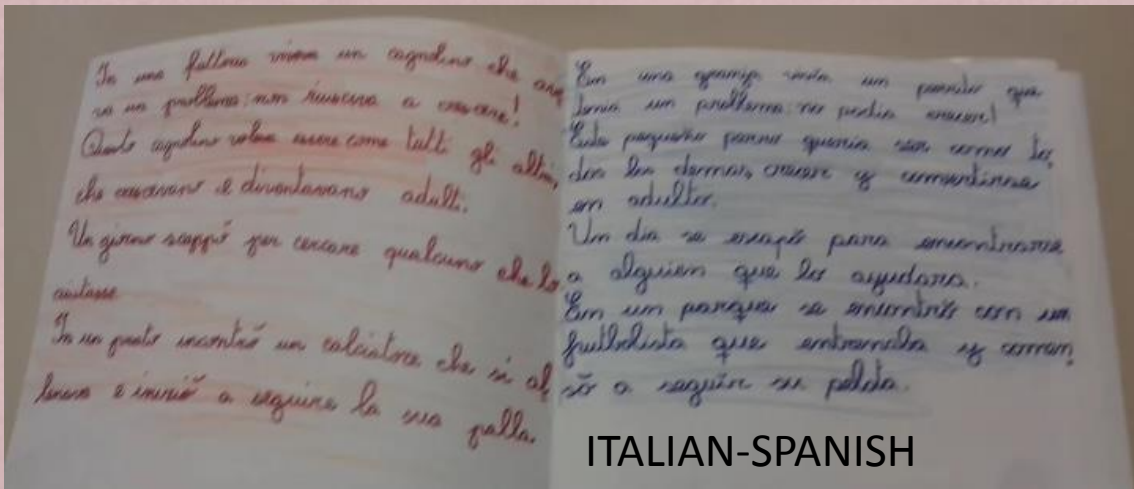 In una fattoria viveva un cagnolino che ave
va un problema: non riusciva a crescere!
Questo cagnolino voleva essere come tutti gli altri,
che crescevano e diventavano adulti.
Un giorno scappò per cercare qualcuno che lo
aiutasse.
In un prato incontrò un calciatore che si al
lenava e iniziò a seguire la sua palla.
En una granja vivía un perrito que
tenía un problema: no podía crecer!
Este pequeño perro quería ser como to
dos los demas, crecer y convertirse
en adulto.
Un dia se escapó para encontrarse
a alguien que lo ayudara.
En un parque se encontró con un
futbolista que entrenaba y comen
zó a seguir su pelota.
ITALIAN-SPANISH